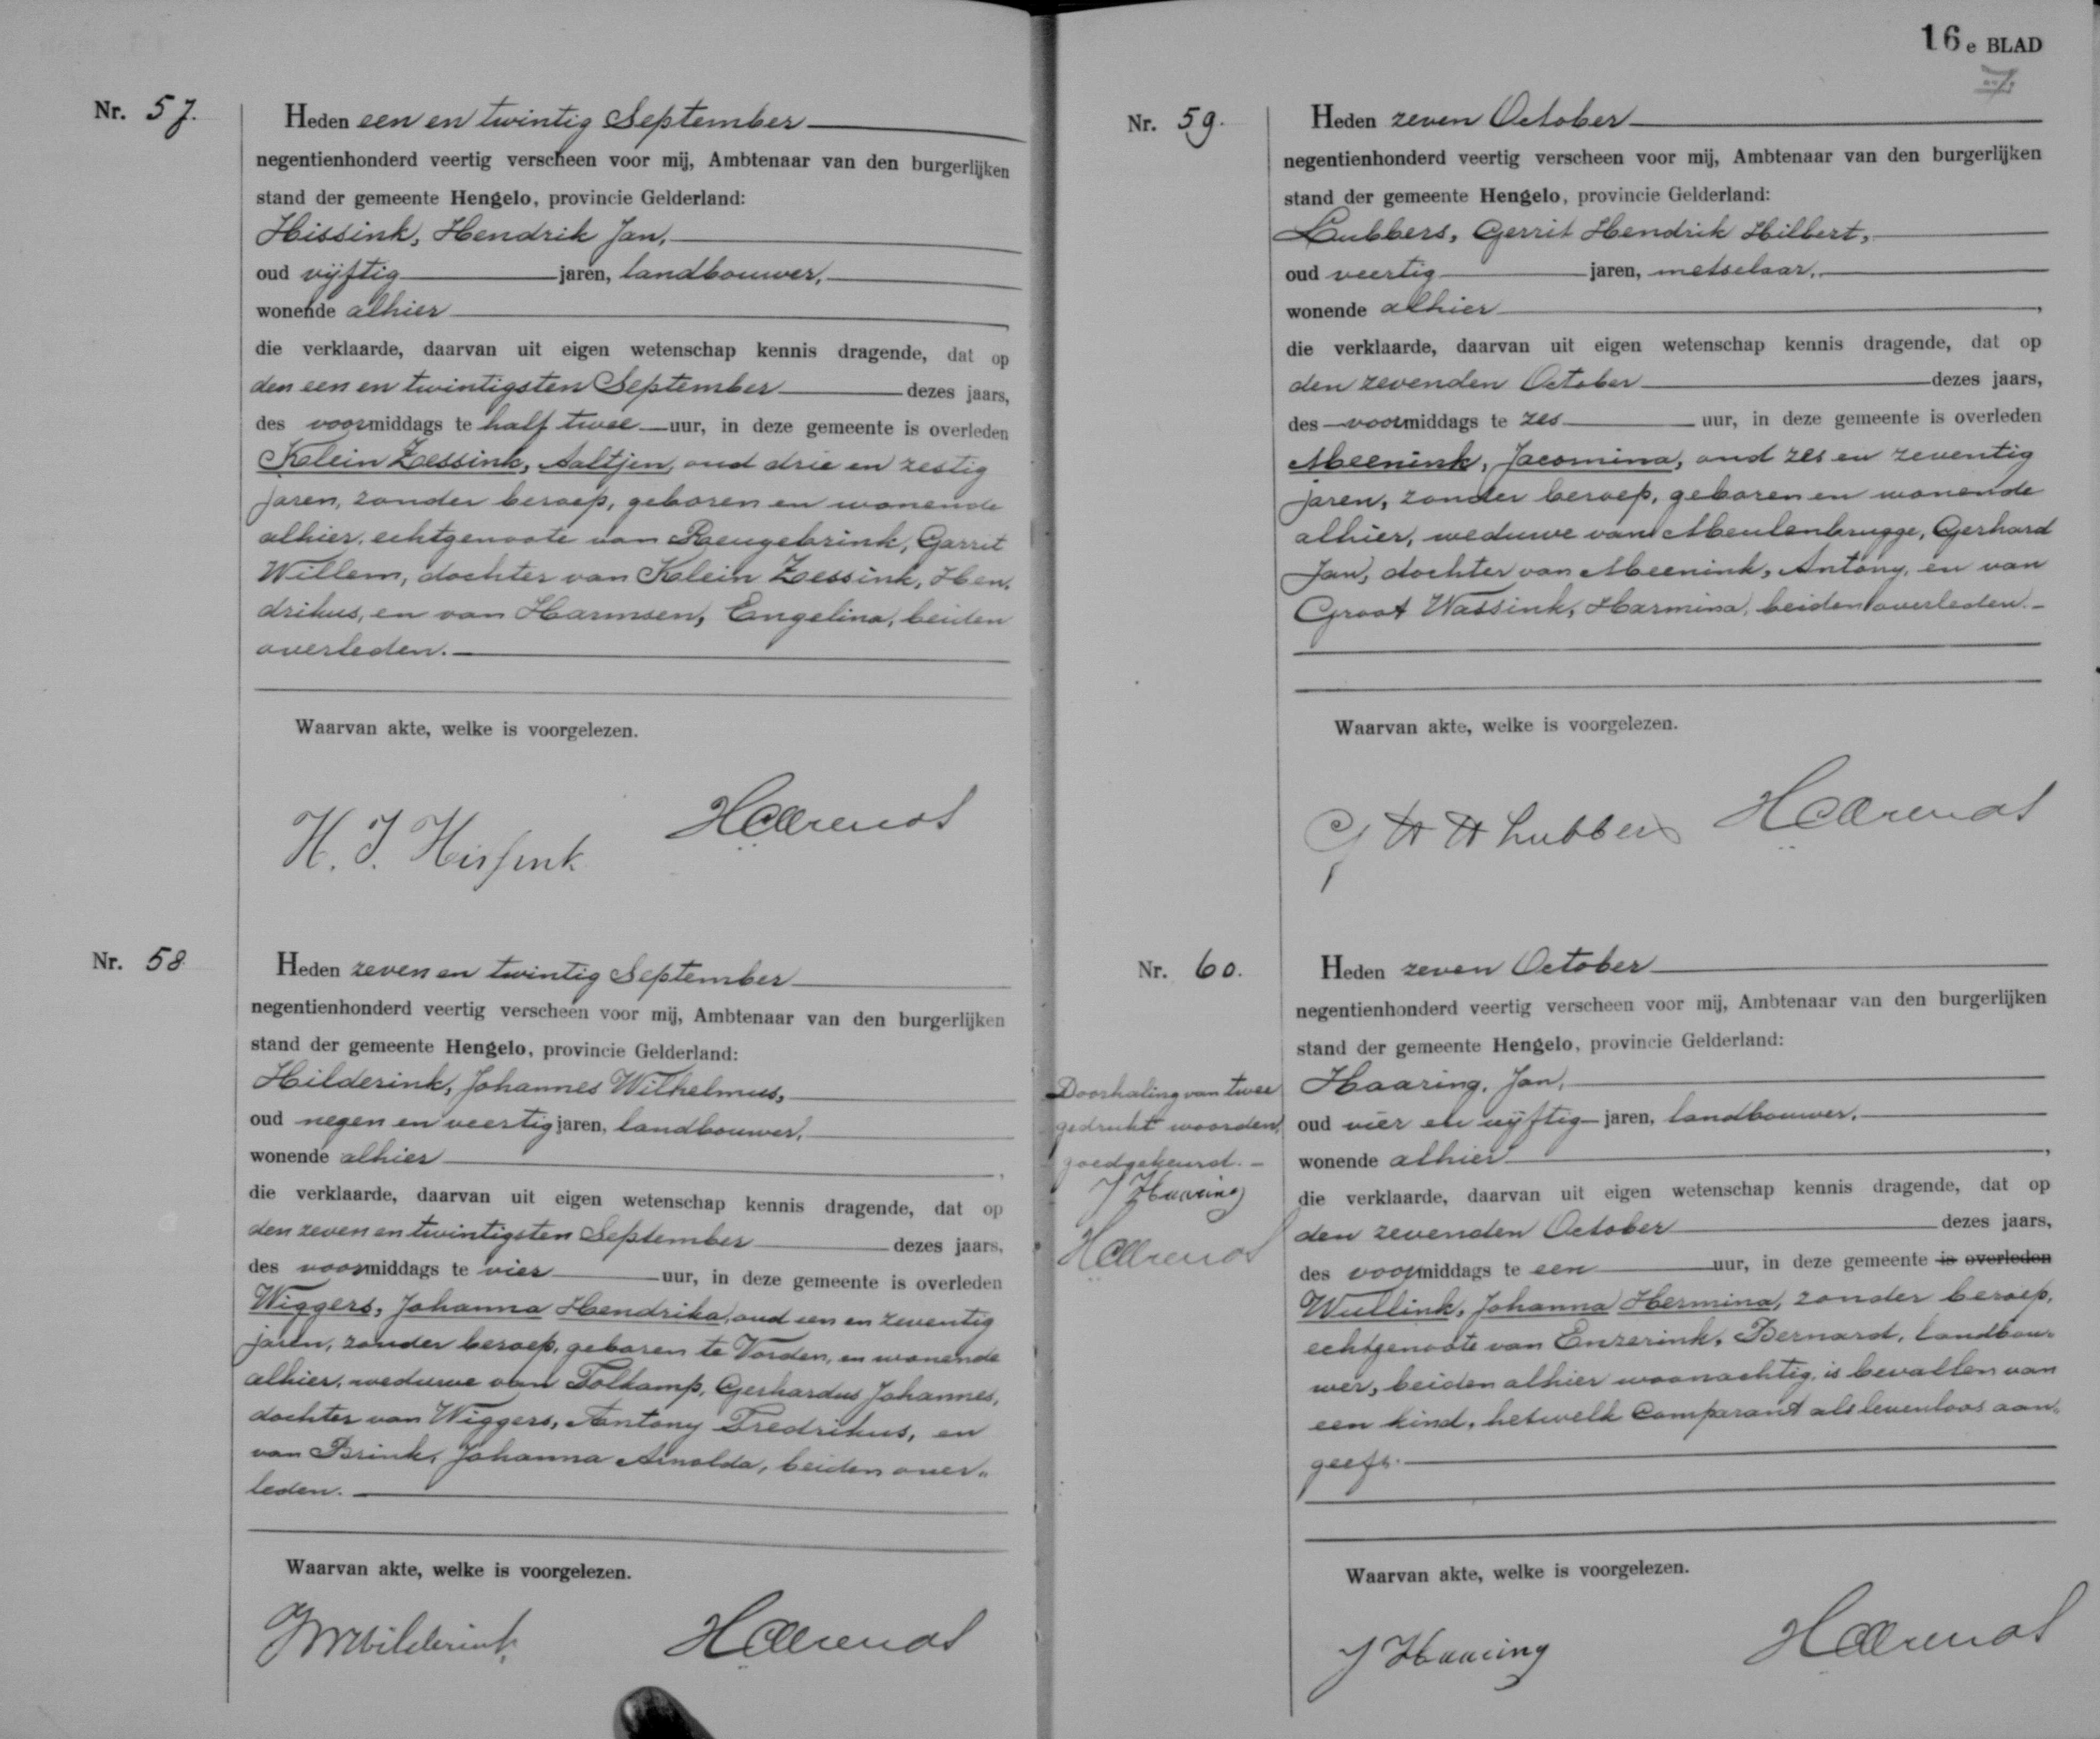 Nr. 57.
Heden een en twintig September
negentienhonderd veertig verscheen voor mij, Ambtenaar van den burgerlijken
stand der gemeente Hengelo, provincie Gelderland:
Hissink, Hendrik Jan,
oud vijftig jaren, landbouwer,
wonende alhier
die verklaarde, daarvan uit eigen wetenschap kennis dragende, dat op
den een en twintigsten September dezes jaars,
des voormiddags te half twee uur, in deze gemeente is overleden
Klein Zessink, Aaltjen, oud drie en zestig
jaren, zonder beroep, geboren en wonende
alhier, echtgenoote van Reugebrink, Garrit
Willem, dochter van Klein Zessink, Hen,
drikus, en van Harmsen, Engelina, beiden
overleden.
Waarvan akte, welke is voorgelezen.
H. J. Hissink HCArends
Nr. 58
Heden zeven en twintig September
negentienhonderd veertig verscheen voor mij, Ambtenaar van den burgerlijken
stand der gemeente Hengelo, provincie Gelderland:
Hilderink, Johannes Wilhelmus,
oud negen en veertig jaren, landbouwer,
wonende alhier,
die verklaarde, daarvan uit eigen wetenschap kennis dragende, dat op
den zeven en twintigsten September dezes jaars,
des voormiddags te vier uur, in deze gemeente is overleden
Wiggers, Johanna Hendrika, oud een en zeventig
jaren, zonder beroep, geboren te Vorden, en wonende
alhier, weduwe van Tolkamp, Gerhardus Johannes,
dochter van Wiggers, Antony Fredrikus, en
van Brink, Johanna Arnolda, beiden over„
leden.
Waarvan akte, welke is voorgelezen.
JWHilderink HCArends
16e BLAD
Nr. 59.
Heden zeven October
negentienhonderd veertig verscheen voor mij, Ambtenaar van den burgerlijken
stand der gemeente Hengelo, provincie Gelderland:
Lubbers, Gerrit Hendrik Hilbert,
oud veertig jaren, metselaar,
wonende alhier,
die verklaarde, daarvan uit eigen wetenschap kennis dragende, dat op
den zevenden October dezes jaars,
des voormiddags te zes uur, in deze gemeente is overleden
Meenink, Jacomina, oud zes en zeventig
jaren, zonder beroep, geboren en wonende
alhier, weduwe van Meulenbrugge, Gerhard
Jan, dochter van Meenink, Antony, en van
Groot Wassink, Harmina, beiden overleden.
Waarvan akte, welke is voorgelezen.
G H H Lubbers HCArends
Nr. 60.
Heden zeven October
negentienhonderd veertig verscheen voor mij, Ambtenaar van den burgerlijken
stand der gemeente Hengelo, provincie Gelderland:
Haaring, Jan,
oud vier en vijftig jaren, landbouwer,
wonende alhier,
die verklaarde, daarvan uit eigen wetenschap kennis dragende, dat op
den zevenden October dezes jaars,
des voormiddags te een uur, in deze gemeente is overleden
Wullink, Johanna Hermina, zonder beroep,
echtgenoote van Enzerink, Bernard, landbou„
wer, beiden alhier woonachtig, is bevallen van
een kind, hetwelk Comparant als levenloos aan„
geeft.
Doorhaling van twee
gedrukt woorden,
goedgekeurd.
J Haaring
HCArends
Waarvan akte, welke is voorgelezen.
J Haaring HCArends